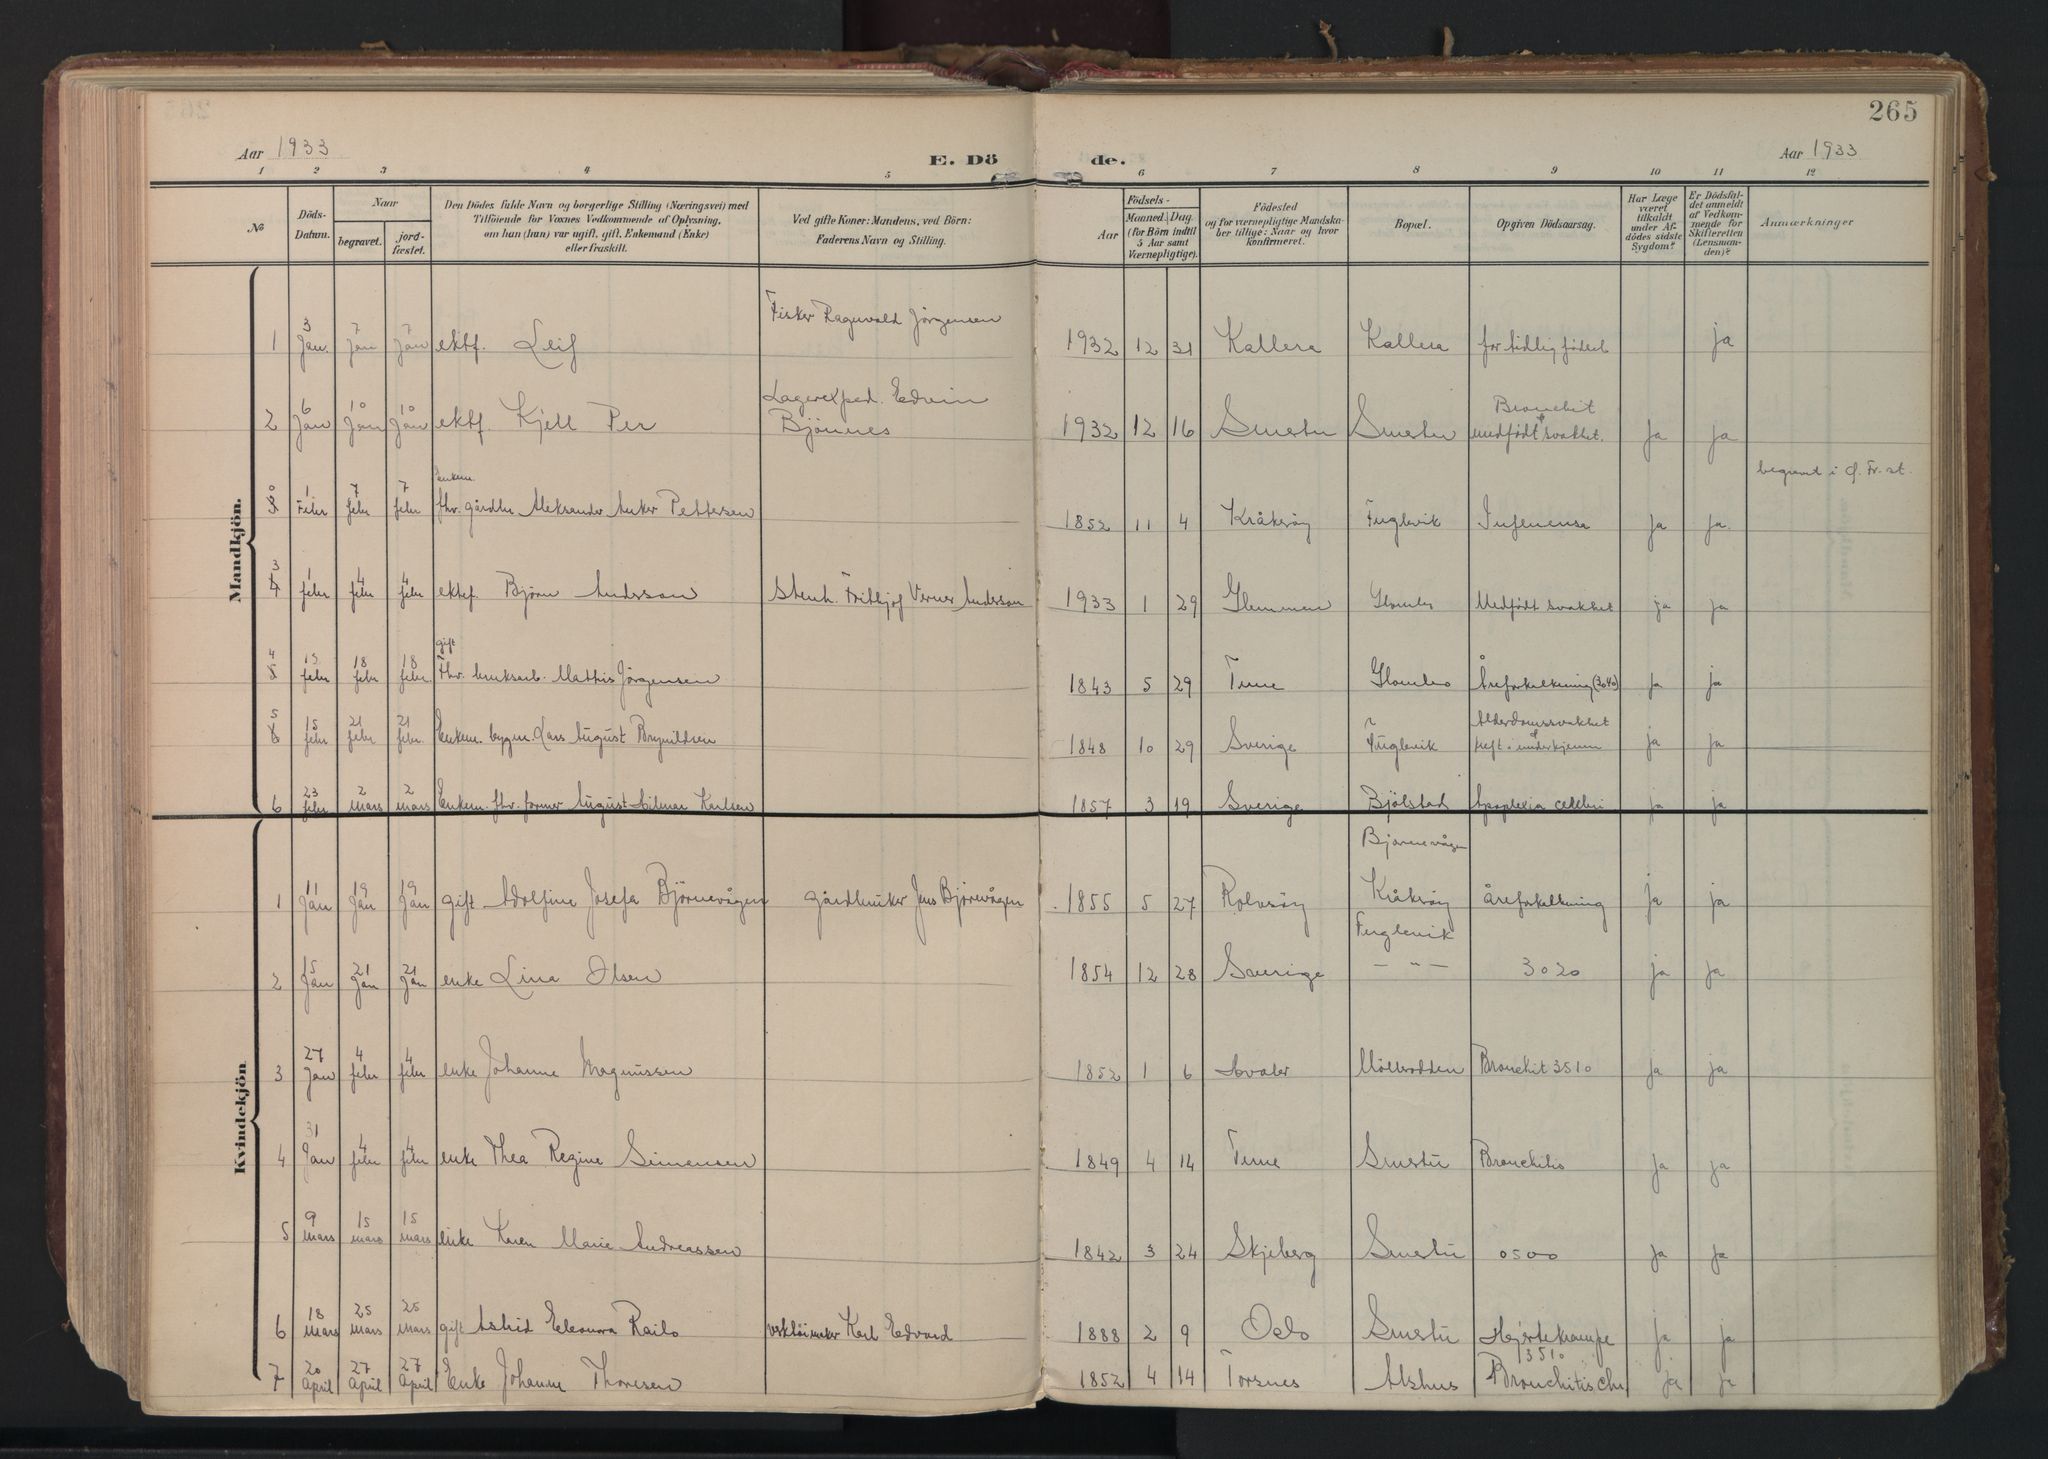 265
Aar 1933 E. Dö de. Aar 1933
1 2 3 4 5 6 7 8 9 10 11 12
№
Döds-Datum.
Naar
begravet.
jord-fæstet.
Den Dödes fulde Navn og borgerlige Stilling (Næringsvei) med
Tilföiende for Voxnes Vedkommende af Oplysning,
om han (hun) var ugift, gift, Enkemand (Enke)
eller fraskilt.
Ved gifte Koner: Mandens, ved Börn:
Faderens Navn og Stilling.
Födsels-
Aar
Maaned. Dag.
(for Börn indtil
5 Aar samt
Værnepligtige).
Födested
og for værnepligtige Mandska-
ber tillige: Naar og hvor
konfirmeret.
Bopæl.
Opgiven Dödsaarsag.
Har Læge
været
tilkaldt
under Af-
dödes sidste
Sygdom?
Er Dödsfal-
det anmeldt
af Vedkom-
mende for
Skifteretten
(Lensman-
den)?
Anmærkninger
Mandkjön.
1 3 Jan. 7 Jan 7 Jan ektf. Leif Fisker Ragnvald Jörgensen 1932 12 31 Kallera Kallera for tidlig födsel ja
2 6 Jan 10 Jan 10 Jan ektf. Kjell Per Lagerexped. Edvin Bjönnes 1932 12 16 Smertu Smertu Bronchit & medfödt svakhet. ja ja
0 3 1 Febr 7 febr 7 febr enkem. fhv. gårdbr Aleksander Anker Pettersen 1852 11 4 Kråkröy Fuglevik Influensa ja ja begravd i Ö. Fr.st.
3 4 1 febr 4 febr 4 febr ektef. Björn Anderson Stenh. Frithjof Verner Anderson 1933 1 29 Glemmen Glombo Medfödt svakhet ja ja
4 5 15 febr 18 febr 18 febr. gift Fhv. bruksarb. Mathis Jörgensen 1843 5 29 Tune Glombo Åreforkalkning (3040) ja ja
5 6 15 febr 21 febr 21 febr. Enkem. bygm. Lars August Brynildsen 1848 10 29 Sverige Fuglevik Alderdomssvakhet & kreft i underkjeven ja ja
6 23 febr 2 mars 2 mars Enkem. fhv. former August Hilmar Karlsen 1857 3 19 Sverige Bjölstad Apoplexia cerebri ja ja
Kvindekjön
1 11 Jan 19 Jan 19 Jan gift Adolfine Josefa Björnevågen gårdbruker Jens Björnevågen 1855 5 27 Rolvsöy Björnevågen Kråkröy åreforkalkning ja ja
2 15 Jan 21 Jan 21 Jan enke Lina Olsen 1854 12 28 Sverige Fuglevik — " — 3020 ja ja
3 27 Jan 4 febr 4 febr enke Johanne Magnussen 1852 1 6 Hvaler Möllerodden Bronchit 3510 ja ja
4 31 Jan 4 febr 4 febr enke Thea Regine Simensen 1849 4 14 Tune Smertu Bronchitis ja ja
5 9 mars 15 mars 15 mars enke Karen Marie Andreassen 1842 3 24 Skjeberg Smertu 0500 ja ja
6 18 mars 25 mars 25 mars gift Astrid Eleonora Railo verktöimaker Karl Edvard 1888 2 9 Oslo Smertu Hjertekrampe ja ja
7 20 April 27 April 27 April Enke Johanne Thoresen 1852 4 14 Torsnes Alshus 3510 Bronchitis chr ja ja